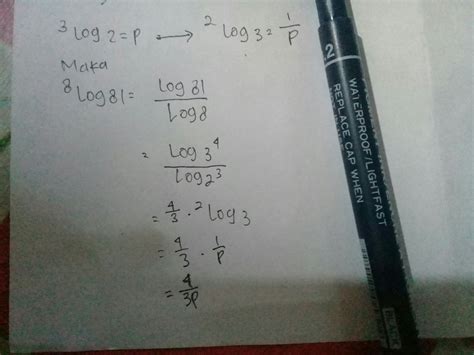 ³log 2 = P → ²log 3 = 1/P
Maka
⁸log 81 = log 81 / log 8
= log 3⁴ / log 2³
= 4/3 · ²log 3
= 4/3 · 1/P
= 4/3P
2
WATERPROOF/LIGHTFAST
REPLACE CAP WHEN